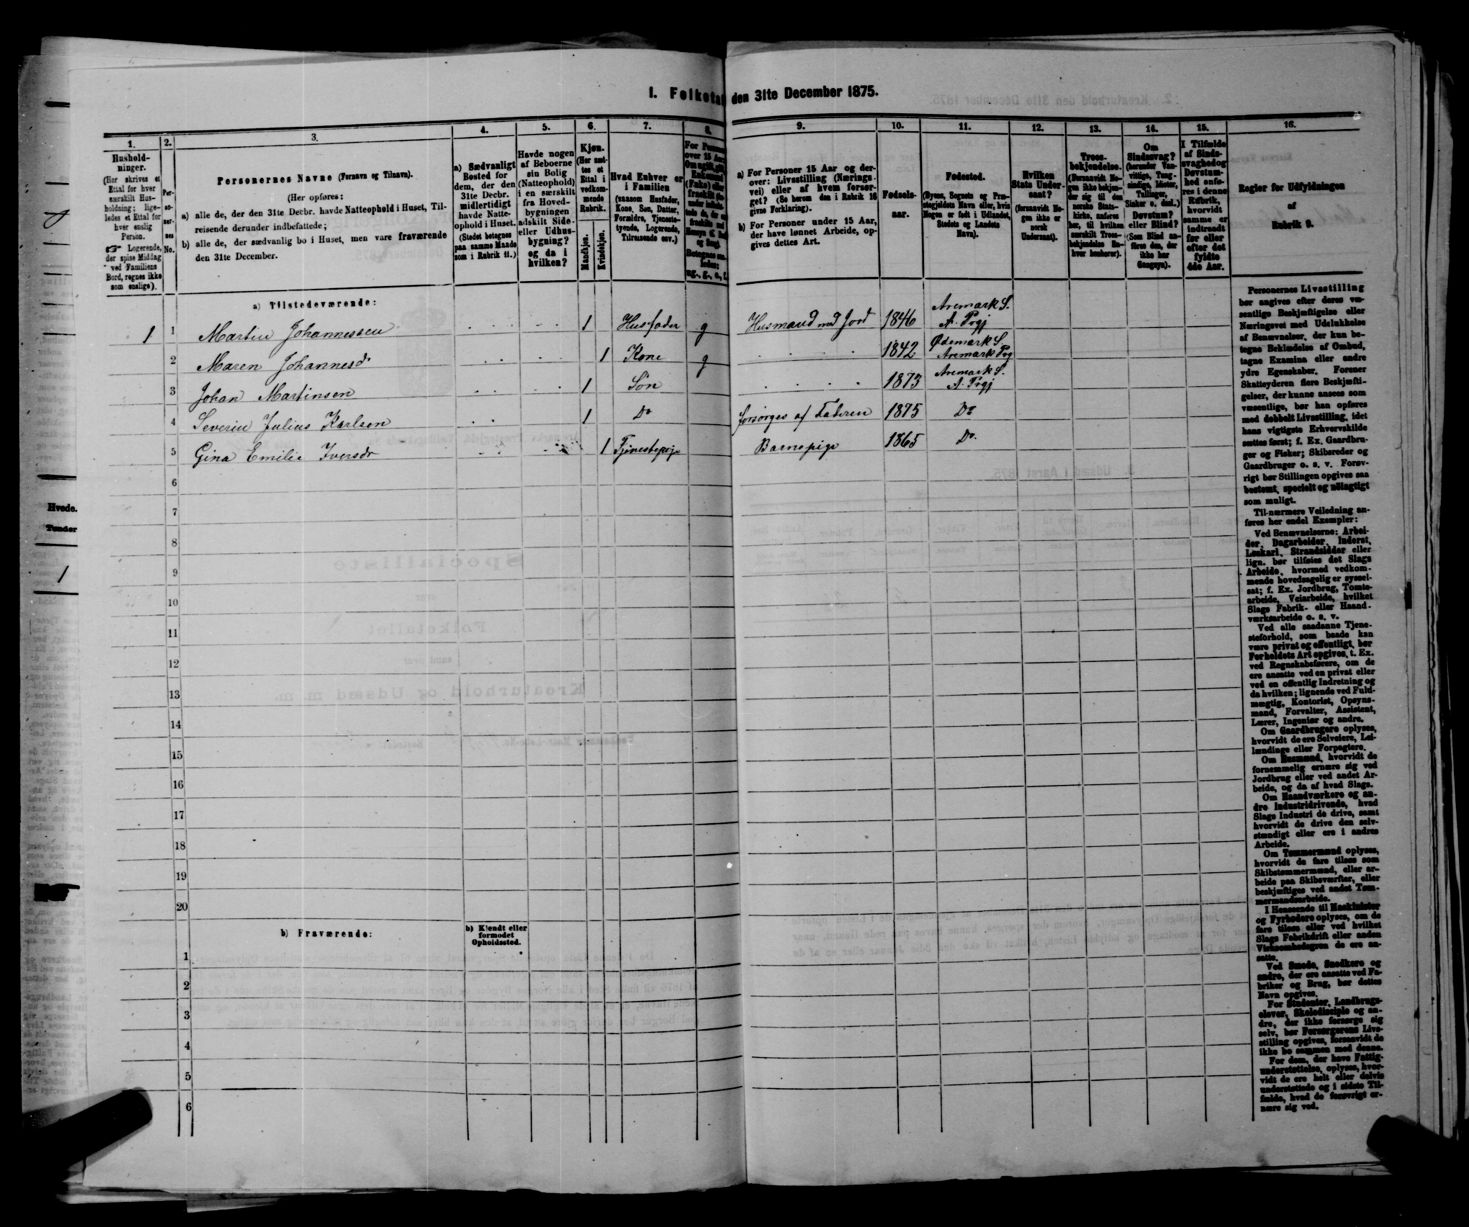 I. Folketal den 31te December 1875.
1. 2. 3. 4. 5. 6. 7. 8. 9. 10. 11. 12. 13. 14. 15. 16.
Hushold-
ninger.
(Her skrives et
Ettal for hver
særskilt Hus-
holdning; lige-
ledes et Ettal for
hver enslig
Person.
☞ Logerende,
der spise Middag
ved Familiens
Bord, regnes ikke
som enslige).
Per-
so-
ner-
nes
No.
Personernes Navne (Fornavn og Tilnavn).
(Her opføres:
a) alle de, der den 31te Decbr. havde Natteophold i Huset, Til-
reisende derunder indbefattede;
b) alle de, der sædvanlig bo i Huset, men vare fraværende
den 31te December.
a) Sædvanligt
Bosted for
dem, der den
31te Decbr.
midlertidigt
havde Natte-
ophold i Huset.
(Stedet betegnes
paa samme Maade
som i Rubrik 11.)
Havde nogen
af Beboerne
sin Bolig
(Natteophold)
i en særskilt
fra Hoved-
bygningen
adskilt Side-
eller Udhus-
bygning?
og da i
hvilken?
Kjøn.
(Her sæt-
tes et
Ettal i
vedkom-
mende
Rubrik.
Mandkjøn.
Kvindekjøn.
Hvad Enhver er
i Familien
(saasom Husfader,
Kone, Søn, Datter,
Forældre, Tjeneste-
tyende, Logerende,
Tilreisende osv.)
a) For Personer 15 Aar og der-
over: Livsstilling (Nærings-
vei) eller af hvem forsør-
get? (Se herom den i Rubrik 16
givne Forklaring).
b) For Personer under 15 Aar,
der have lønnet Arbeide, op-
gives dettes Art.
Fødsels-
aar.
Fødested.
(Byens, Sognets og Præ-
stegjeldets Navn eller, hvis
Nogen er født i Udlandet,
Stedets og Landets
Navn).
Hvilken
Stats Under-
saat?
(forsaavidt No-
gen ikke er
norsk
Undersaat).
Troes-
bekjendelse.
(Forsaavidt No-
gen ikke bekjen-
der sig til den
norske Stats-
kirke, anføres
her, til hvilken
særskilt Troes-
bekjendelse En-
hver henhører).
Om
Sindssvag?
(herunder Van-
vittige, Tung-
sindige, Idioter,
Tullinger,
Sinker o. desl.)
Døvstum?
eller Blind?
(Som Blind an-
føres den, der
ikke har
Gangsyn).
I Tilfælde
af Sinds-
svaghed og
Døvstum-
hed anfø-
res i denne
Rubrik,
hvorvidt
samme er
indtraadt
før eller
efter det
fyldte
4de Aar.
Regler for Udfyldningen
af
Rubrik 9.
a) Tilstedeværende:
1 1 Martin Johannessen 1 Husfader g Husmand med Jord 1846 Aremark S. A. Pgj
2 Maren Johannesd 1 Kone g 1842 Ødemark S. Aremark Pgj
3 Johan Martinsen 1 Søn 1873 Aremark S. A. Pgj
4 Severin Julius Karlsen 1 Do forsørges af Faderen 1875 Do
5 Gina Emilie Iversdr 1 Tjenestepige Barnepige 1865 Do.
6
7
8
9
10
11
12
13
14
15
16
17
18
19
20
b) Fraværende:
b) Kjendt eller
formodet
Opholdssted.
1
2
3
4
5
6
Personernes Livsstilling
bør angives efter deres væ-
sentlige Beskjæftigelse eller
Næringsvei med Udelukkelse
af Benævnelser, der kun be-
tegne Beklædelse af Ombud,
tagne Examina eller andre
ydre Egenskaber. Forener
Skatteyderen flere Beskjæfti-
gelser, der kunne ansees som
væsentlige, bør han opføres
med dobbelt Livsstilling, idet
hans vigtigste Erhvervskilde
sættes først; f. Ex. Gaardbru-
ger og Fisker; Skibsreder og
Gaardbruger o. s. v. Forøv-
rigt bør Stillingen opgives saa
bestemt, specielt og nøiagtigt
som muligt.
Til nærmere Veiledning an-
føres her endel Exempler:
Ved Benævnelserne: Arbei-
der, Dagarbeider, Inderst,
Løskarl, Strandsidder eller
lign. bør tilføies det Slags
Arbeide, hvormed vedkom-
mende hovedsagelig er syssel-
sat; f. Ex. Jordbrug, Tomte-
arbeide, Veiarbeide, hvilket
Slags Fabrik- eller Haand-
værksarbeide o. s. v.
Ved alle saadanne Tjene-
steforhold, som baade kan
være privat og offentligt, bør
Forholdets Art opgives, t. Ex.
ved Regnskabsførere, om de
ere ansatte ved en privat eller
ved en offentlig Indretning og
da hvilken; lignende ved Fuld-
mægtig, Kontorist, Opsyns-
mand, Forvalter, Assistent,
Lærer, Ingeniør og andre.
Om Gaardbrugere oplyses,
hvorvidt de ere Selveiere, Lei-
lændinge eller Forpagtere.
Om Husmænd, hvorvidt de
fornemmelig ernære sig ved
Jordbrug eller ved andet Ar-
beide, og da af hvad Slags.
Om Haandværkere og an-
dre Industridrivende, hvad
Slags Industri de drive, samt
hvorvidt de drive den selv-
stændigt eller ere i andres
Arbeide.
Om Tømmermænd oplyses,
hvorvidt de fare tilsøs som
Skibstømmermænd, eller ar-
beide paa Skibsværfter, eller
beskjæftiges ved andet Tøm-
mermandsarbeide.
I Henseende til Maskinister
og Fyrbødere oplyses, om de
fare tilsøs eller ved hvilket
Slags Fabrikdrift eller anden
Virksomhedsgren de ere an-
satte.
Ved Smede, Snedkere og
andre, der ere ansatte ved Fa-
briker og Brug, bør dettes
Navn opgives.
For Studenter, Landbrugs-
elever, Skoledisciple og an-
dre, der ikke forsørge sig
selv, bør Forsørgerens Livs-
stilling opgives, forsaavidt de
ikke bo sammen med denne.
For dem, der have Fattig-
understøttelse, oplyses, hvor-
vidt de ere helt eller delvis
understøttede og i sidste Til-
fælde, hvad de forøvrigt er-
nære sig ved.
Hvede.
Tønder
1